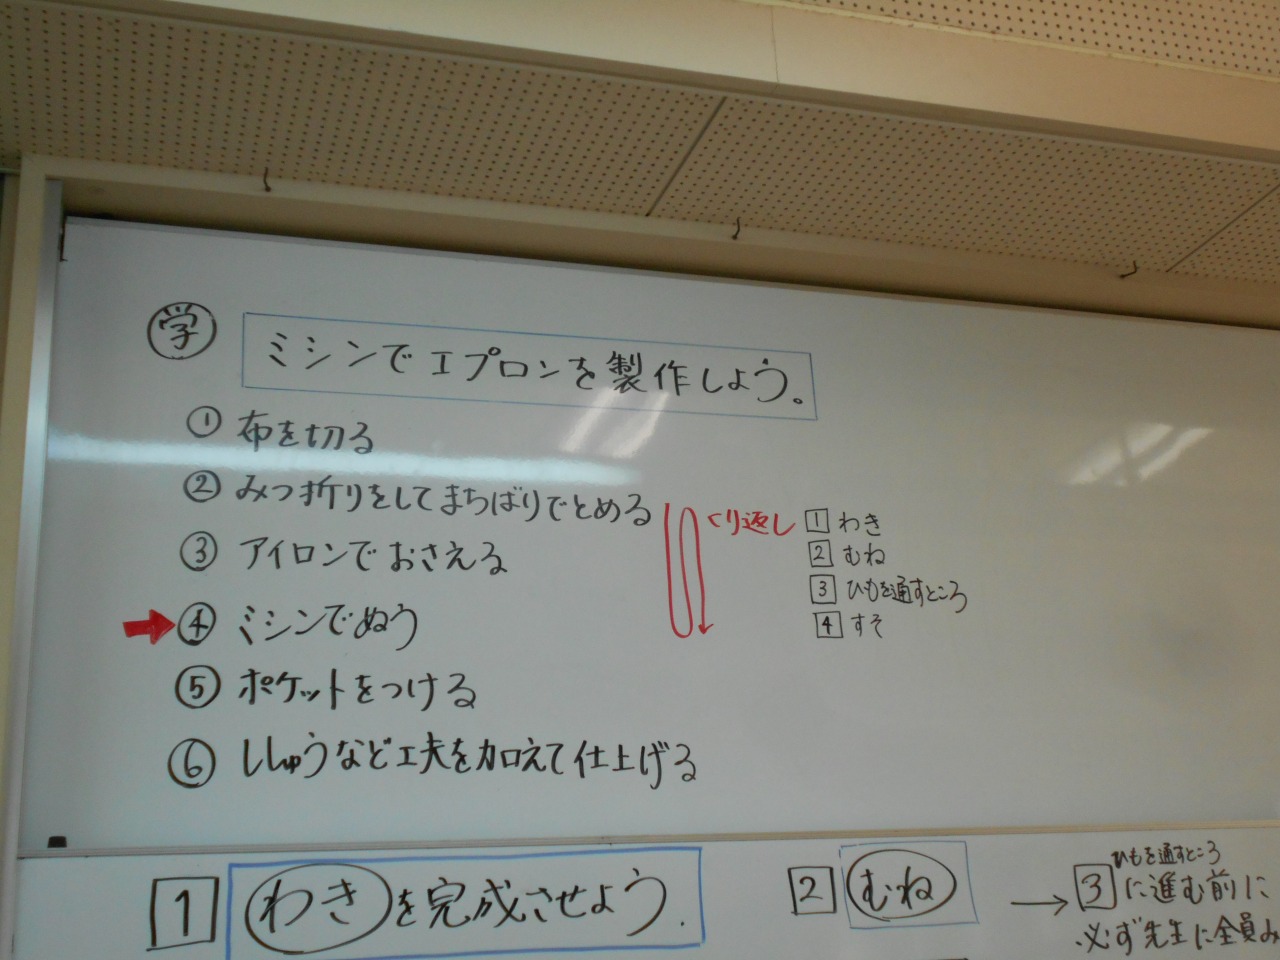 学 ミシンでエプロンを製作しよう。
① 布を切る
② みつ折りをしてまちばりでとめる
③ アイロンでおさえる
④ ミシンでぬう
⑤ ポケットをつける
⑥ ししゅうなど工夫を加えて仕上げる
くり返し
1 わき
2 むね
3 ひもを通すところ
4 すそ
1 わきを完成させよう.
2 むね
ひもを通すところ
→ 3 に進む前に
必ず先生に全員み